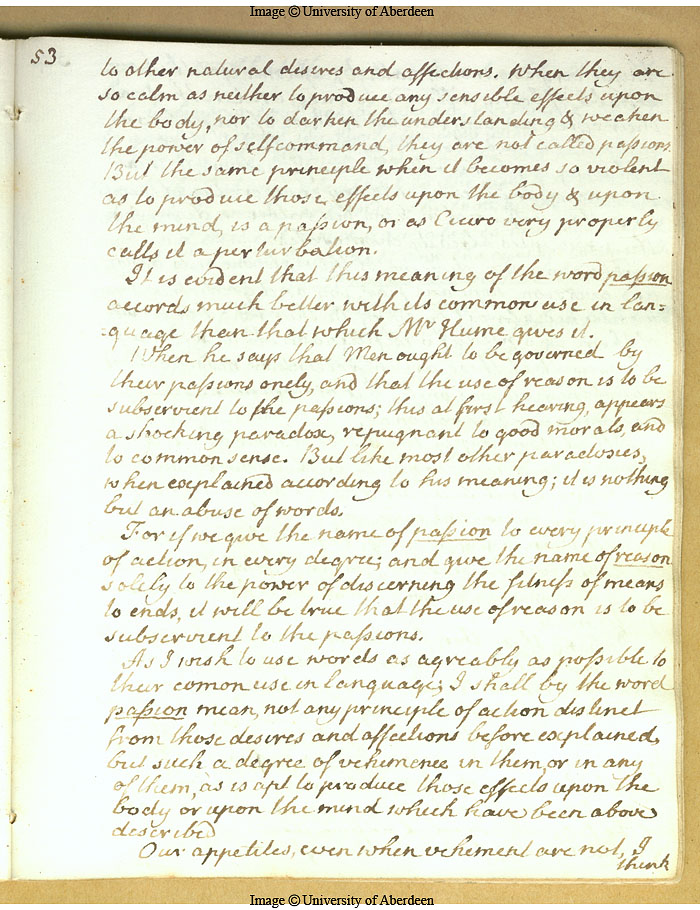 Image © University of Aberdeen
53
to other natural desires and affections. When they are
so calm as neither to produce any sensible effects upon
the body, nor to darken the understanding & weaken
the power of selfcommand, they are not called passions.
But the same principle when it becomes so violent
as to produce those effects upon the body & upon
the mind, is a passion, or as Cicero very properly
calls it a perturbation.
It is evident that this meaning of the word passion
accords much better with its common use in lan=
=guage than that which Mr Hume gives it.
When he says that Men ought to be governed by
their passions onely, and that the use of reason is to be
subservient to the passions; this at first hearing, appears
a shocking paradox, repugnant to good morals, and
to common sense. But like most other paradoxes,
when explained according to his meaning; it is nothing
but an abuse of words.
For if we give the name of passion to every principle
of action, in every degree; and give the name of reason
solely to the power of discerning the fitness of means
to ends, it will be true that the use of reason is to be
subservient to the passions.
As I wish to use words as agreably as possible to
their comon use in language; I shall by the word
passion mean, not any principle of action distinct
from those desires and affections before explained,
but such a degree of vehemence in them, or in any
of them, as is apt to produce those effects upon the
body or upon the mind which have been above
described
Our appetites, even when vehement are not, I
think
Image © University of Aberdeen